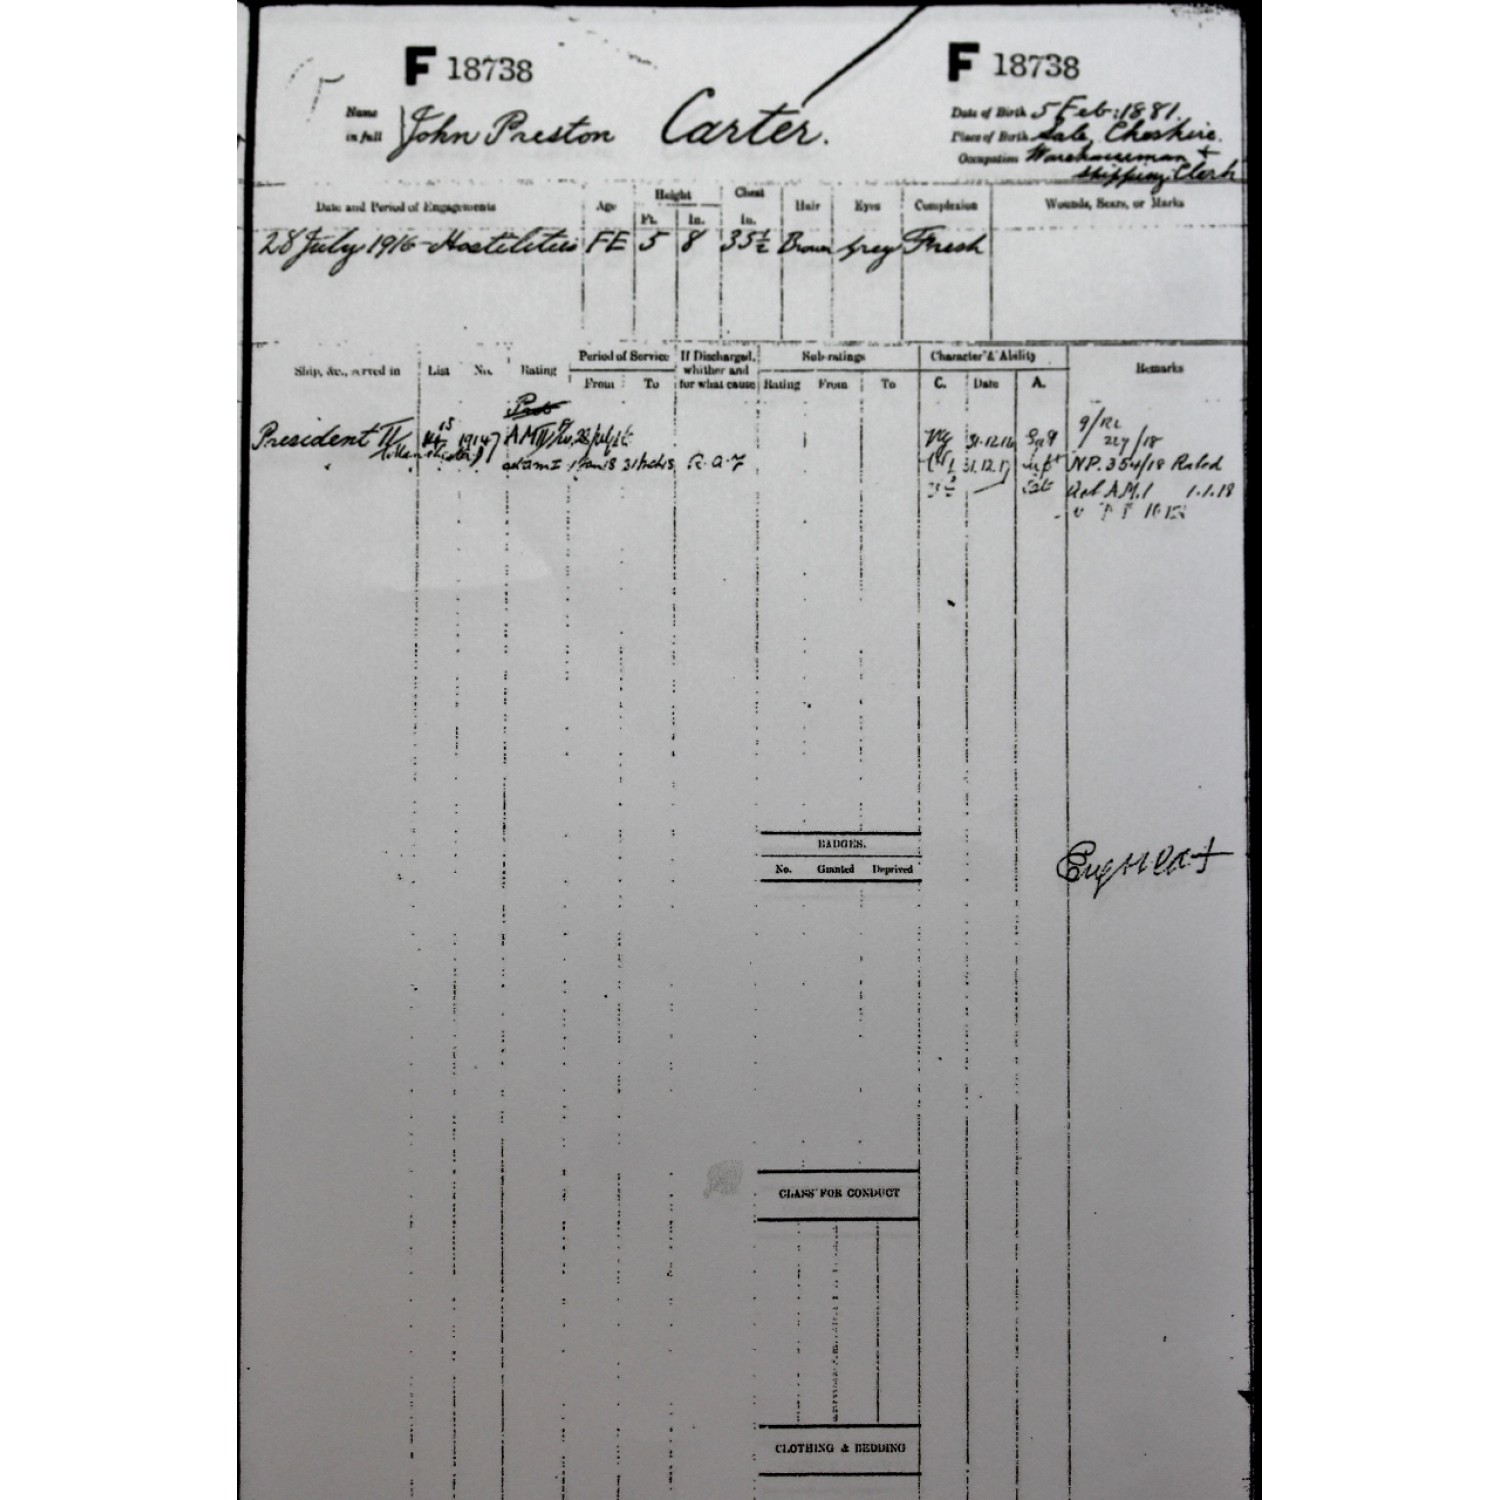 F 18738 F 18738
Name in full John Preston Carter.
Date of Birth 5 Feb: 1881.
Place of Birth Sale, Cheshire.
Occupation Warehouseman + Shipping Clerk
Date and Period of Engagements Age Height Ft. In. Chest In. Hair Eyes Complexion Wounds, Scars, or Marks
28 July 1916 - Hostilities FE 5 8 35½ Brown Grey Fresh
Ship, &c., served in List No. Rating Period of Service From To If Discharged, whither and for what cause Sub-ratings Rating From To Character & Ability C. Date A. Remarks
President II 31.12.16
31.12.17
R.A.F.
NP. 354/18 Rated
A.M.1 1.1.18
BADGES.
No. Granted Deprived
CLASS FOR CONDUCT
CLOTHING & BEDDING